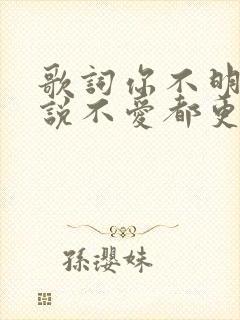 歌詞你不明
説不愛都更
孫瓔姝